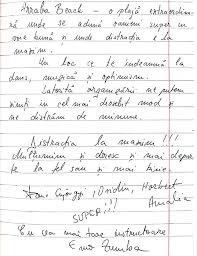 Arkaba Beach - o plajă extraordinară
unde se adună oameni super cu
voie bună și unde distracția e la
maxim.
Un loc ce te îndeamnă la
dans, muzică și optimism.
Datorită organizării ne putem
simți în cel mai deosebit mod și
ne distrăm de minune.
Distracția la maxim!!!
Mulțumim și doresc și mai departe
la fel sau și mai bine.
Györgyi, Ovidiu, Norbert
Amalia
SUPER!!!
Cu cea mai tare instructoare
Zumba